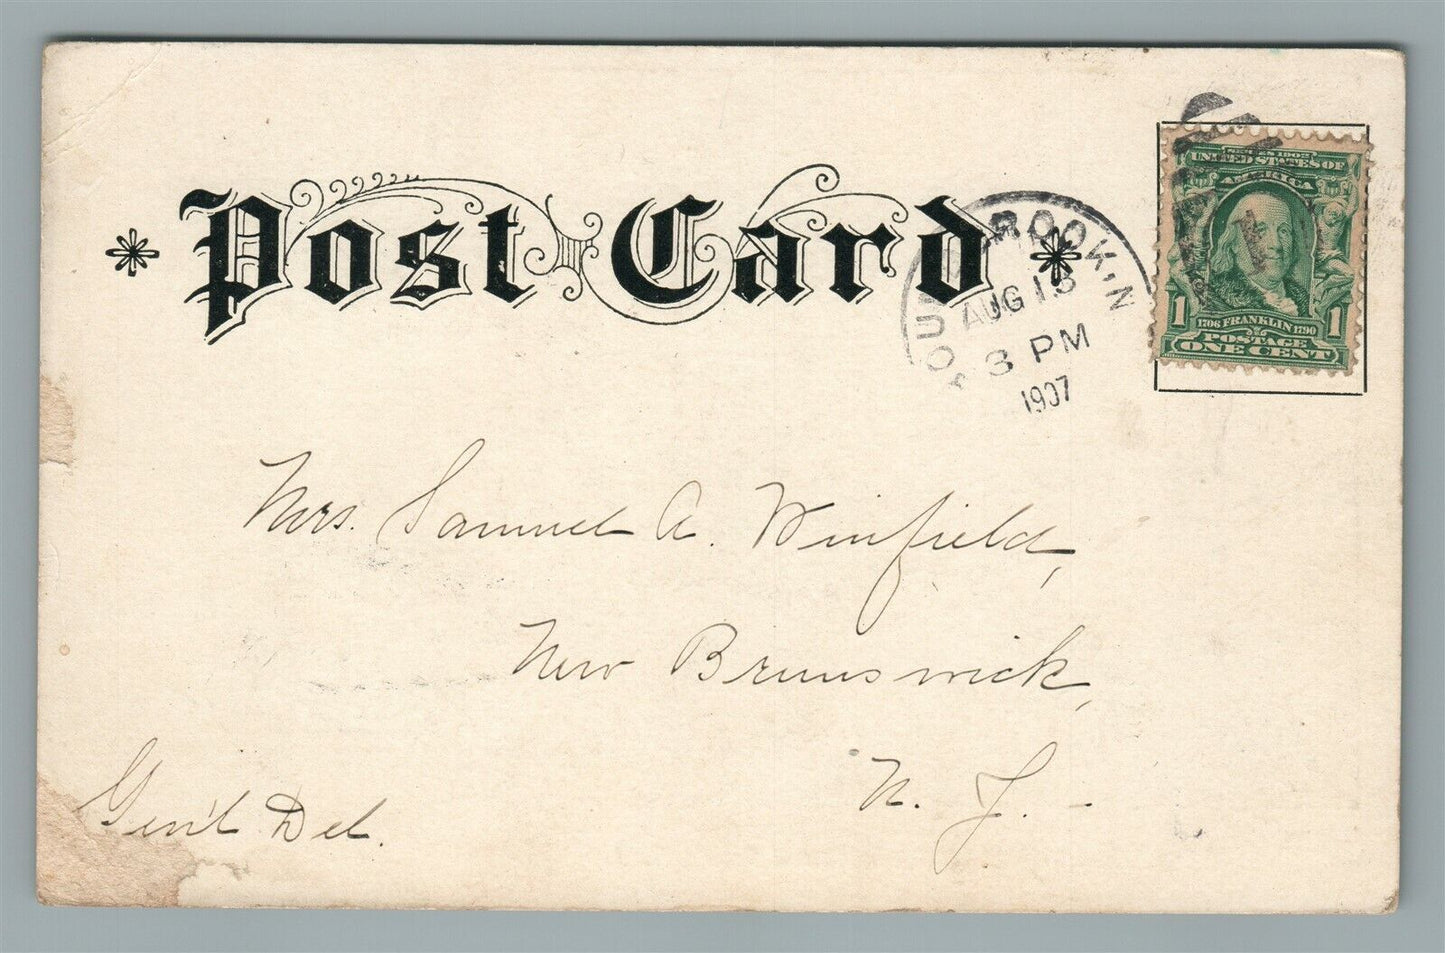 * Post Card *
ROOK, N
AUG 13
3 PM
1907
SERIES 1902
UNITED STATES OF
AMERICA
1 1706 FRANKLIN 1790 1
POSTAGE
ONE CENT
Mrs. Samuel A. Winfield,
New Brunswick,
N. J. -
Gen'l Del.